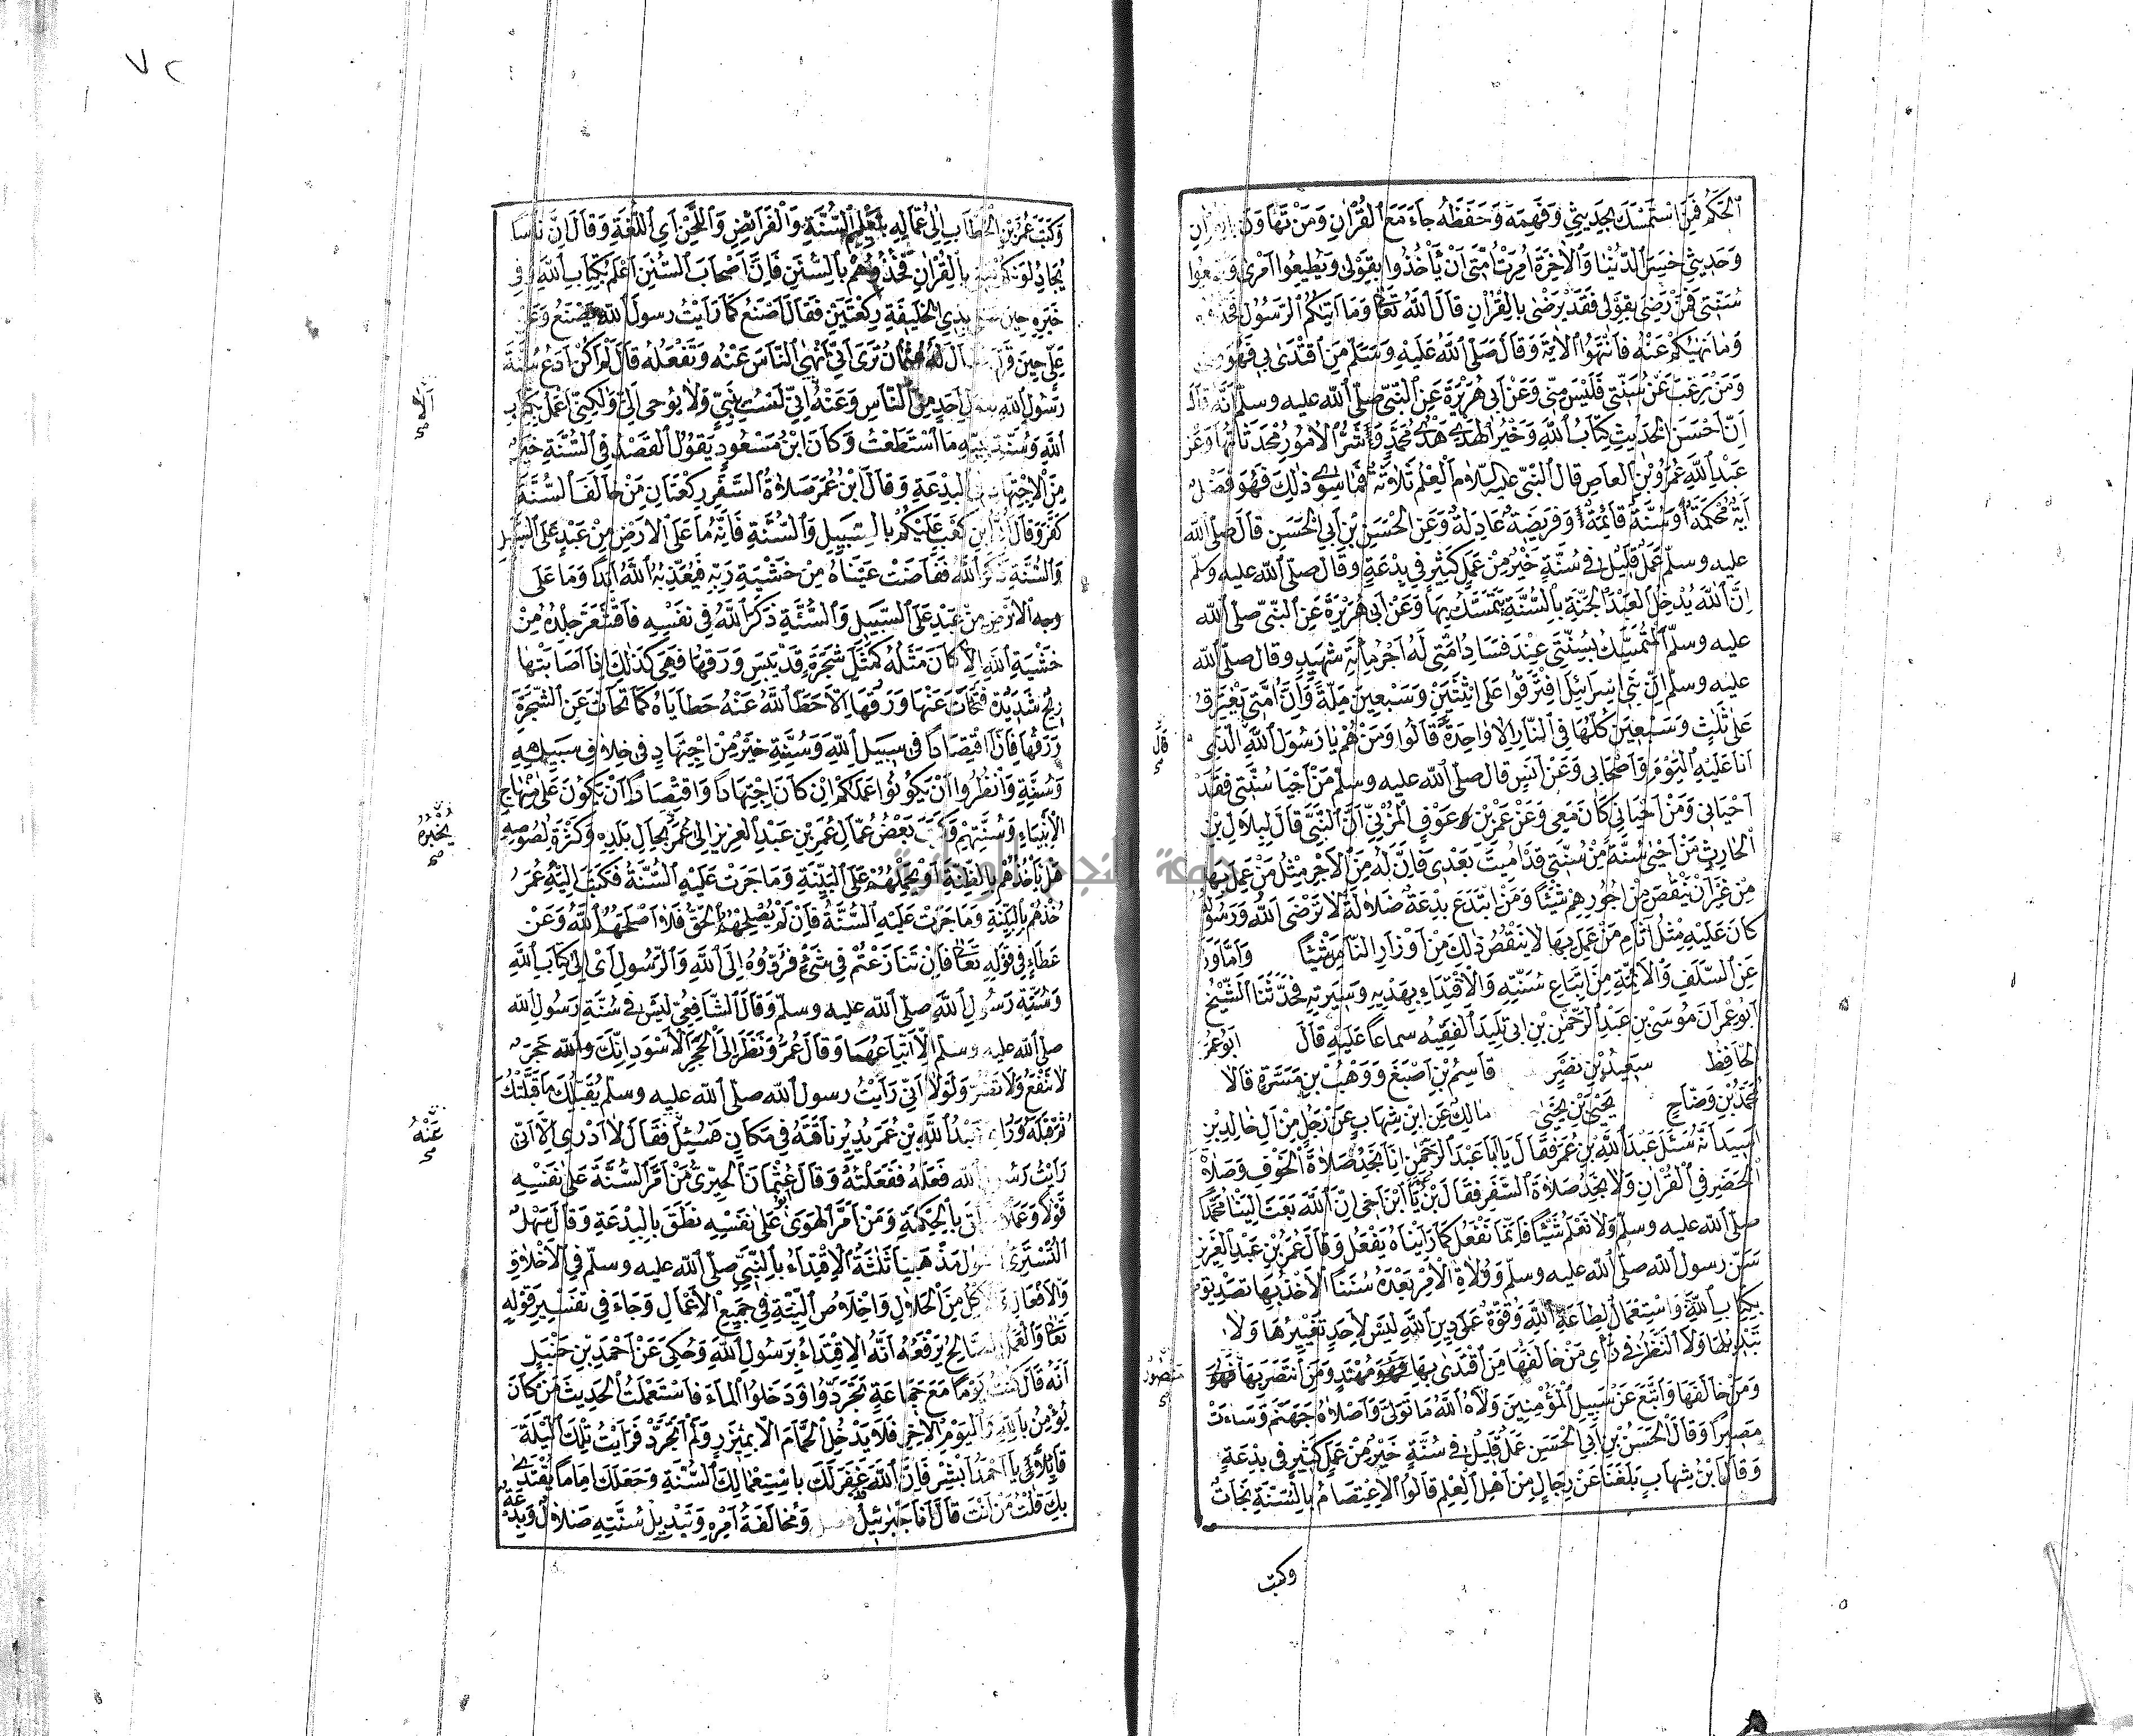 الحكم فمن استمسك بحديثي وفهمه وحفظه جاء مع القرآن ومن تهاون بالقرآن
وحديثي خسر الدنيا والآخرة أمرت أمتي أن يأخذوا بقولي ويطيعوا أمري ويتبعوا
سنتي فمن رضي بقولي فقد رضي بالقرآن قال الله تعالى وما آتيكم الرسول فخذوه
وما نهيكم عنه فانتهوا الآية وقال صلى الله عليه وسلم من اقتدى بي فهو مني
ومن رغب عن سنتي فليس مني وعن أبي هريرة عن النبي صلى الله عليه وسلم أنه قال
إن أحسن الحديث كتاب الله وخير الهدي هدي محمد وشر الأمور محدثاتها وعن
عبد الله عمرو بن العاص قال النبي عليه السلام العلم ثلاثة فما سوى ذلك فهو فضل
آية محكمة أو سنة قائمة أو فريضة عادلة وعن الحسن بن أبي الحسن قال صلى الله
عليه وسلم عمل قليل في سنة خير من عمل كثير في بدعة وقال صلى الله عليه وسلم
إن الله يدخل العبد الجنة بالسنة تمسك بها وعن أبي هريرة عن النبي صلى الله
عليه وسلم المتمسك بسنتي عند فساد أمتي له أجر مائة شهيد وقال صلى الله
عليه وسلم إن بني إسرائيل افترقوا على اثنتين وسبعين ملة وإن أمتي تفترق
على ثلث وسبعين كلها في النار إلا واحدة قالوا ومن هم يا رسول الله الذي
قال
أنا عليه اليوم وأصحابي وعن أنس قال صلى الله عليه وسلم من أحيا سنتي فقد
أحياني ومن أحياني كان معي وعن عمرو بن عوف المزني أن النبي قال لبلال بن
الحارث من أحيى سنة من سنتي قد أميتت بعدي فإن له من الأجر مثل من عمل بها
من غير أن ينقص من أجورهم شيئا ومن ابتدع بدعة ضلالة لا ترضى الله ورسوله
كان عليه مثل آثام من عمل بها لا ينقص ذلك من أوزار الناس شيئا وأما ورد
عن السلف والأئمة من اتباع سنته والاقتداء بهديه وسيرته فحدثنا الشيخ
أبو عمران موسى بن عبد الرحمن بن أبي تليد الفقيه سماعا عليه قال أبو عمر
الحافظ سعيد بن نصر قاسم بن أصبغ ووهب بن مسرة قالا
محمد بن وضاح يحيى بن يحيى مالك عن ابن شهاب عن رجل من آل خالد بن
أسيد أنه سئل عبد الله بن عمر فقال يا أبا عبد الرحمن إنا نجد صلاة الخوف وصلاة
الحضر في القرآن ولا نجد صلاة السفر فقال بن يا ابن أخي إن الله بعث إلينا محمدا
صلى الله عليه وسلم ولا نعلم شيئا فإنما نفعل كما رأيناه يفعل وقال عمر بن عبد العزيز
سن رسول الله صلى الله عليه وسلم وولاة الأمر بعده سننا الأخذ بها تصديق
بكتاب الله واستعمال لطاعة الله وقوة على دين الله ليس لأحد تغييرها ولا
تبديلها ولا النظر في رأي من خالفها من اقتدى بها فهو مهتد ومن انتصر بها فهو
منصور
ومن خالفها واتبع غير سبيل المؤمنين ولاه الله ما تولى وأصلاه جهنم وساءت
مصيرا وقال الحسن بن أبي الحسن عمل قليل في سنة خير من عمل كثير في بدعة
وقال بن شهاب بلغنا عن رجال من أهل العلم قالوا الاعتصام بالسنة نجاة
وكتب
٧٢
وكتب عمر بن الخطاب إلى عماله بتعلم السنة والفرائض واللحن أي اللغة وقال إن ناسا
يجادلونكم بالقرآن فخذوهم بالسنن فإن أصحاب السنن أعلم بكتاب الله وفي
خبره حين صلى بذي الحليفة ركعتين فقال أصنع كما رأيت رسول الله يصنع وعن
علي حين قرن فقال له عثمان ترى أني أنهى الناس عنه وتفعله قال لم أكن أدع سنة
رسول الله لقول أحد من الناس وعنه إني لست بنبي ولا يوحى إلي ولكني أعمل بكتاب
ألا
الله وسنة نبيه ما استطعت وكان ابن مسعود يقول القصد في السنة خير
من الاجتهاد في البدعة وقال ابن عمر صلاة السفر ركعتان من خالف السنة
كفر وقال أبي بن كعب عليكم بالسبيل والسنة فإنه ما على الأرض من عبد على السبيل
والسنة ذكر الله ففاضت عيناه من خشية ربه فيعذبه الله أبدا وما على
وجه الأرض من عبد على السبيل والسنة ذكر الله في نفسه فاقشعر جلده من
خشية الله إلا كان مثله كمثل شجرة قد يبس ورقها فهي كذلك إذا أصابتها
ريح شديدة فتحات عنها ورقها إلا حط الله عنه خطاياه كما تحات عن الشجرة
ورقها فإن اقتصادا في سبيل الله وسنة خير من اجتهاد في خلاف سبيل الله
وسنة وانظروا أن يكونوا عملكم إن كان اجتهادا واقتصادا أن تكون على منهاج
الأنبياء وسنتهم وكتب بعض عمال عمر بن عبد العزيز إلى عمر بحال بلده وكثرة لصوصه
يخبره
هل يأخذهم بالظنة أو يحملهم على البينة وما جرت عليه السنة فكتب إليه عمر
خذهم بالبينة وما جرت عليه السنة فإن لم يصلحهم الحق فلا أصلحهم الله وعن
عطاء في قوله تعالى فإن تنازعتم في شيء فردوه إلى الله والرسول أي إلى كتاب الله
وسنة رسول الله صلى الله عليه وسلم وقال الشافعي ليس في سنة رسول الله
صلى الله عليه وسلم إلا اتباعها وقال عمر ونظر إلى الحجر الأسود إنك والله حجر
لا تنفع ولا تضر ولولا أني رأيت رسول الله صلى الله عليه وسلم يقبلك ما قبلتك
ثم قبله ورأى عبد الله بن عمر يدير ناقته في مكان فسئل فقال لا أدري إلا أني
عنه
رأيت رسول الله فعله ففعلته وقال عثمان الحيري من أمر السنة على نفسه
قولا وعملا نطق بالحكمة ومن أمر الهوى على نفسه نطق بالبدعة وقال سهل
التستري أصول مذهبنا ثلثة الاقتداء بالنبي صلى الله عليه وسلم في الأخلاق
والأفعال والأكل من الحلال وإخلاص النية في جميع الأعمال وجاء في تفسير قوله
تعالى والعمل الصالح يرفعه أنه الاقتداء برسول الله وحكي عن أحمد بن حنبل
أنه قال كنت يوما مع جماعة تجردوا ودخلوا الماء فاستعملت الحديث من كان
يؤمن بالله واليوم الآخر فلا يدخل الحمام إلا بمئزر ولم أتجرد فرأيت تلك الليلة
قائلا لي يا أحمد أبشر فإن الله غفر لك باستعمالك السنة وجعلك إماما يقتدى
بك قلت من أنت قال أنا جبرئيل فصل ومخالفة أمره وتبديل سنته ضلال وبدعة
جامعة النجاح الوطنية